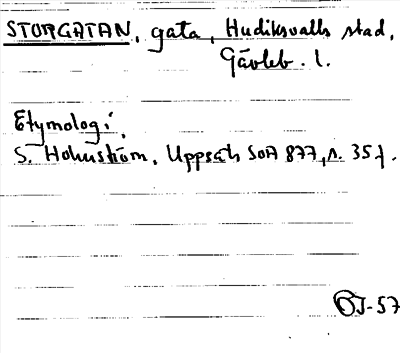 STORGATAN, gata, Hudiksvalls stad,
Gävleb. l.
Etymologi.
S. Holmström, Uppsats SOA 877, s. 35 f.
OJ-57